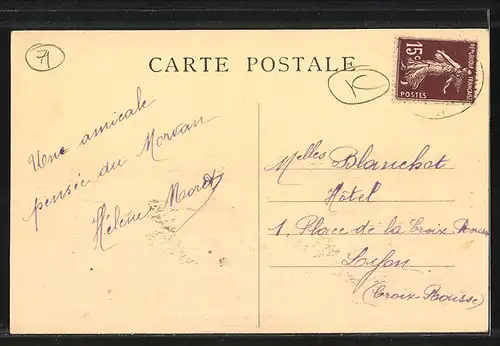 71
CARTE POSTALE
K
15c
REPUBLIQUE FRANÇAISE
POSTES
Une amicale
pensée du Morvan
Hélène
Melles Blanchot
Hôtel
1. Place de la Croix Rousse
Lyon
(Croix-Rousse)